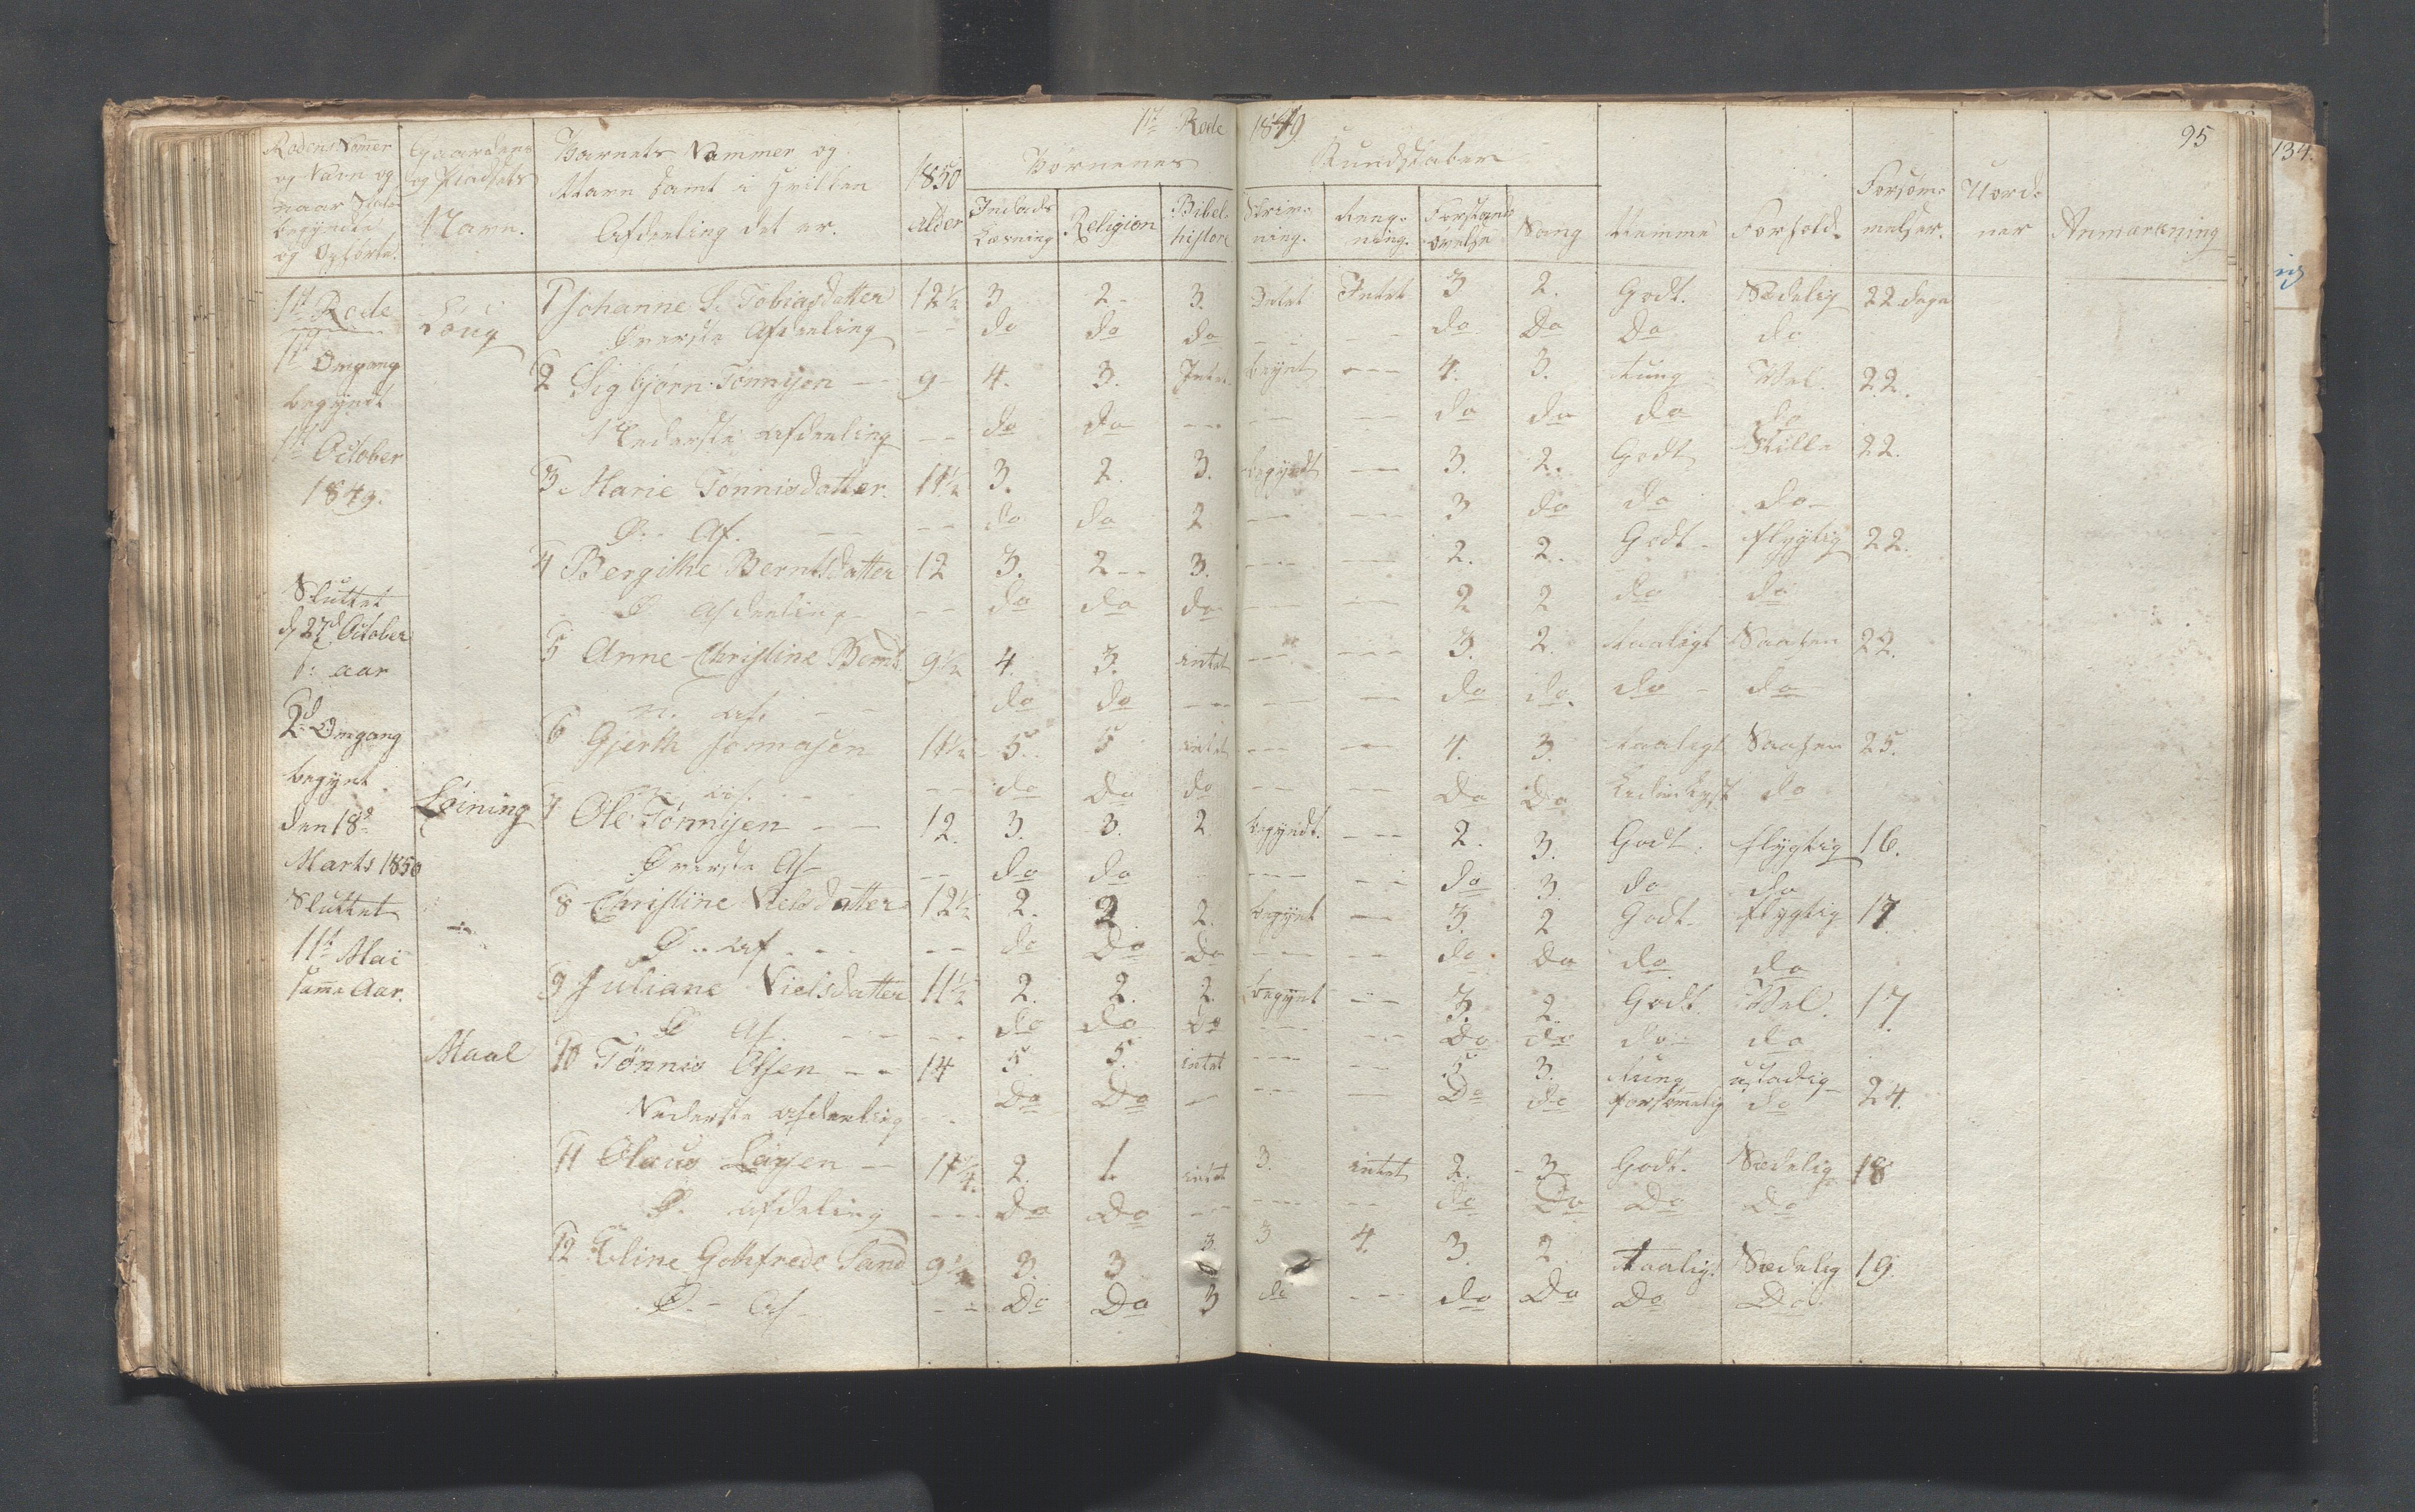 1ste Rode 1849. 95
Rodens Nomer og Navn og naar Skolen begyndte og Ophørte.
Gaardens og Pladsets Navn.
Barnets Nummer og Navn samt i hvilken Afdeeling det er.
1850 Alder
Børnenes Kundskaber
Indads Læsning
Religion
Bibel historie
Skrivning.
Regning.
Forstands øvelse
Sang
Nemme
Forhold.
Forsømmelser.
Uordner
Anmærkning
134.
1ste Rode
1ste Omgang
begyndt
1ste October
1849.
Sluttet
d. 27de October
s: aar
2d Omgang
begynt
den 18de
Marts 1850
Sluttet
11te Mai
samme Aar.
1 Johanne S. Tobiasdatter 12½ 3 2 3. Intet Intet 3 2. Godt. Sædelig 22 dage
Øverste Afdeeling -- do do do -- -- do Do Do do
2 Sigbjørn Tønnesen -- 9 4. 3. Intet beynt --- 4. 3. tung Vel. 22.
Nederste Afdeeling -- do do --- -- -- do do do do
3 Marie Tønnisdatter 11½ 3. 2. 3. begyndt --- 3. 2. Godt Stille 22.
Ø. Af. -- do do 2 -- --- 3 do do do
4 Bergithe Berntsdatter 12 3. 2 -- 3. --- --- 2. 2. Godt flygtig 22.
Ø Afdeeling -- do do do --- --- 2 2 do do
5 Anne Christine Bernts 9½ 4. 3. intet --- --- 3. 2. taaligt 22.
N. Af. -- do do --- --- --- do do. do do
6 Gjerth 11½ 5. 5 intet --- --- 4. 3. taaligt 25.
N. Af. -- do Do do -- -- Do Do do
Løining 7 Ole Tønnesen -- 12. 3. 3. 2 begyndt. --- 2. 3. Godt. flygtig 16.
Øverste Af -- do do --- --- do 3. do do
8 Christine Nielsdatter 12½ 2. 2 2. begynt --- 3. 2 Godt. flygtig 17.
Ø. Af. -- do Do Do --- -- do do do do
9 Juliane Nielsdatter 11½ 2. 2. 2. begynt --- 3. 2. Godt. Vel. 17.
Ø Af. -- do do Do --- -- Do do do do
Maal 10 Tønnes Olsen -- 14 5. 5. intet --- 5. 3. tung ustadig 24.
Nederste Afdeeling -- Do Do -- --- --- Do do forsømelig do
11 Olaus -- 2. 1. intet 3. intet 2. 3. Godt. Sædelig 18
Ø. Afdeling --- Do Do -- --- do Do Do Do
12 Eline Gothfrede Sand 9½ 3. 3 3. 3 4. 3. 2. taalig. Sædelig 19.
Ø. Af --- Do Do 3 do --- do Do Do Do